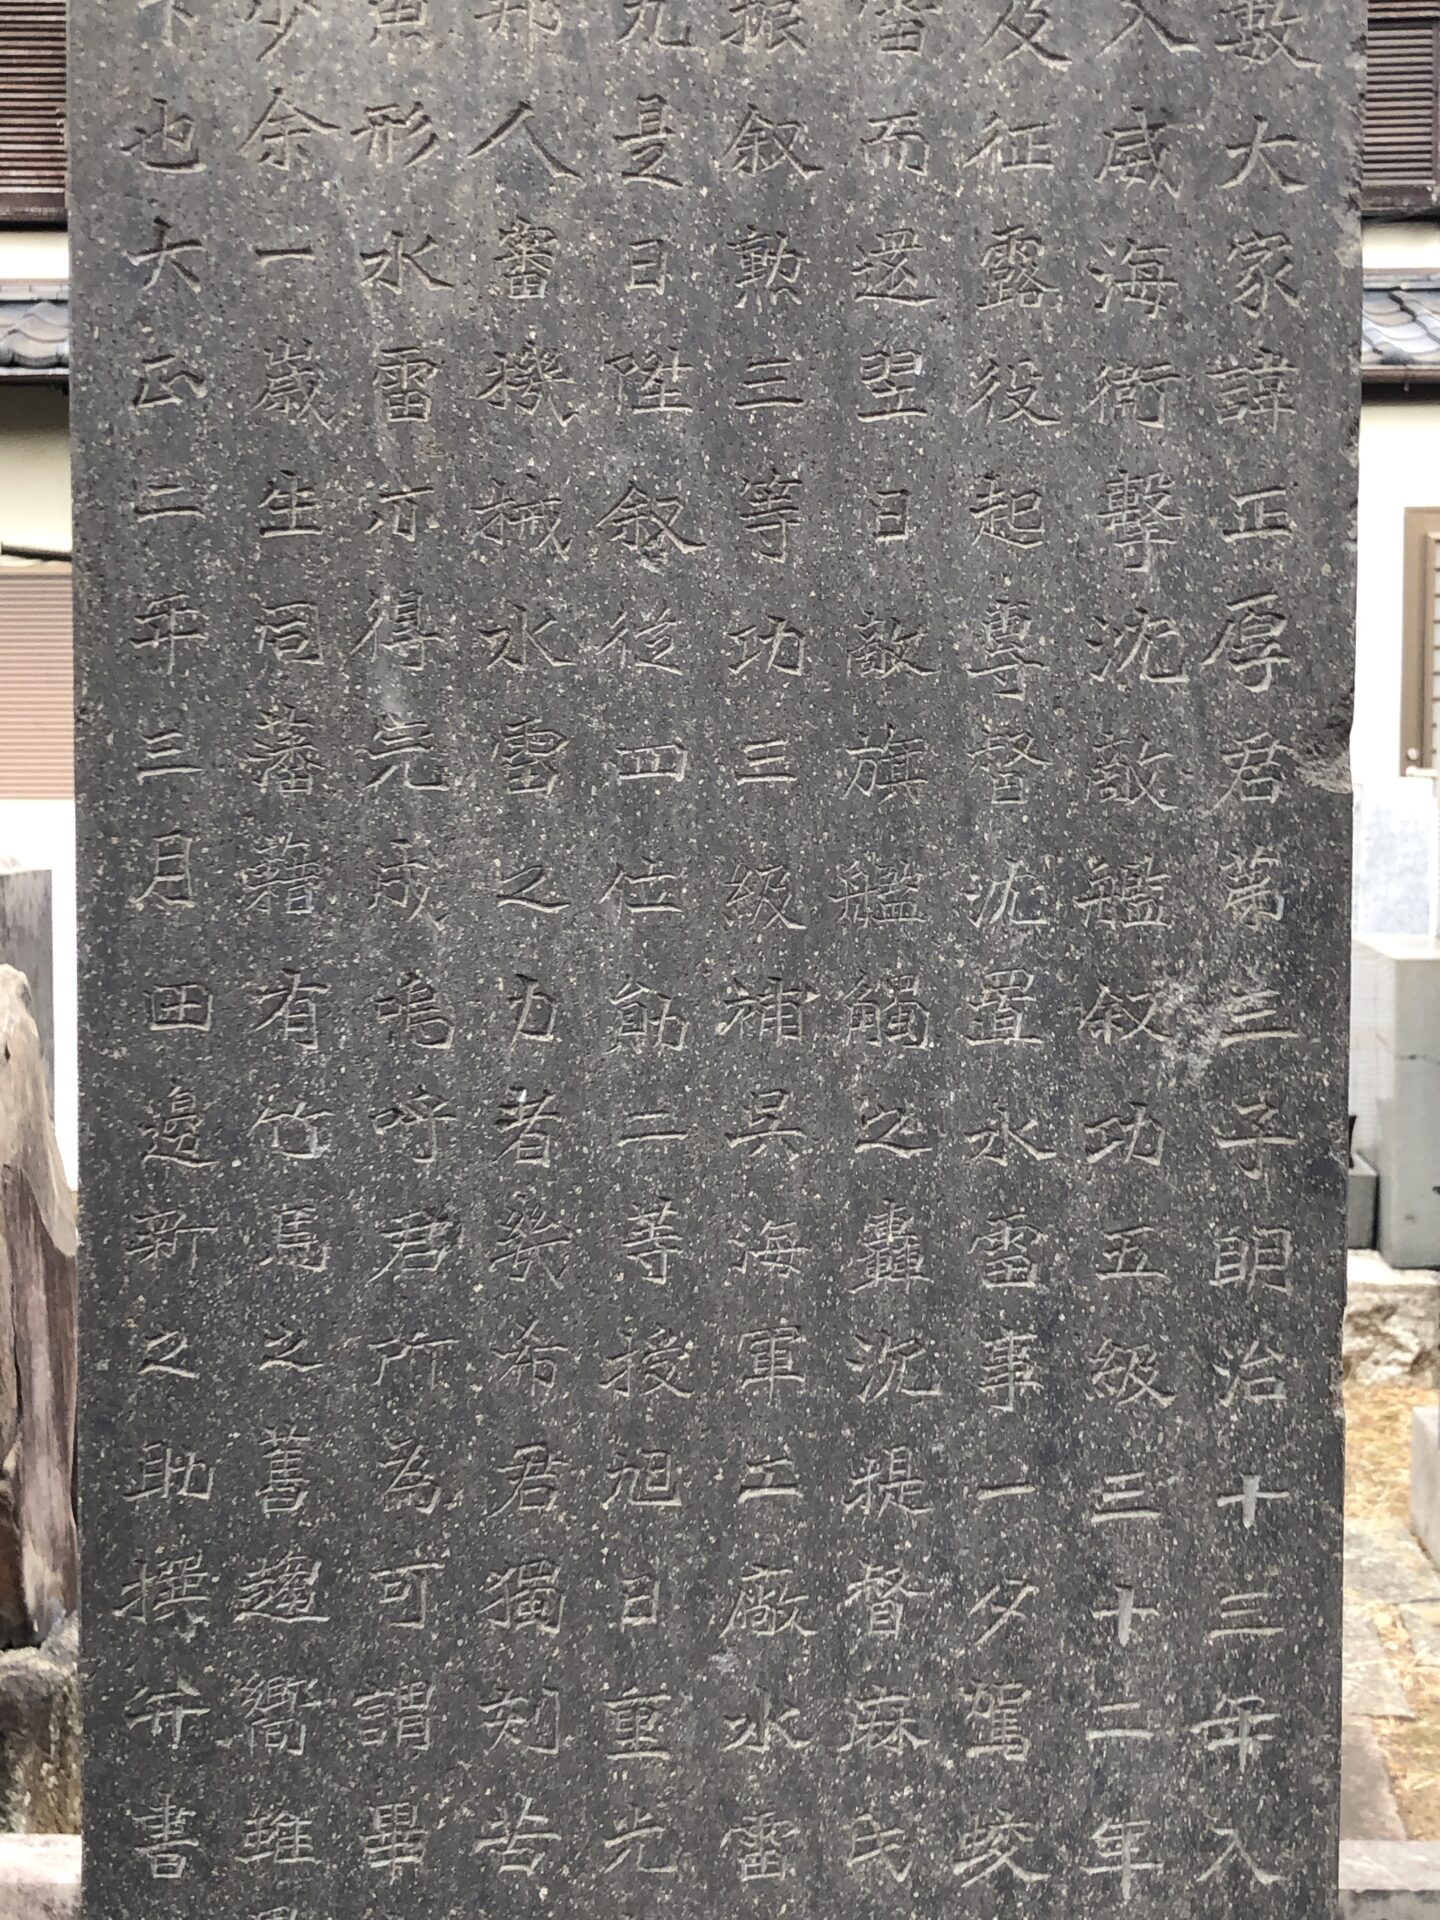 數大家諱正厚君第三子明治十三年入
入威海衛擊沈敵艦敘功五級三十二年
及征露役起尊督沈置水雷事一夕駕蛟
雷而還翌日敵旗艦觸之轟沈提督麻氏
振叙勳三等功三級補呉海軍工廠水雷
九是日陞敘從四位勛二等授旭日重光
邦人審機械水雷之力者幾希君獨刻苦
形水雷亦得完成嗚呼君所為可謂畢
少余一歳生同藩籍有竹馬之舊趨嚮雖
下也大正二年三月田邊新之助撰幷書